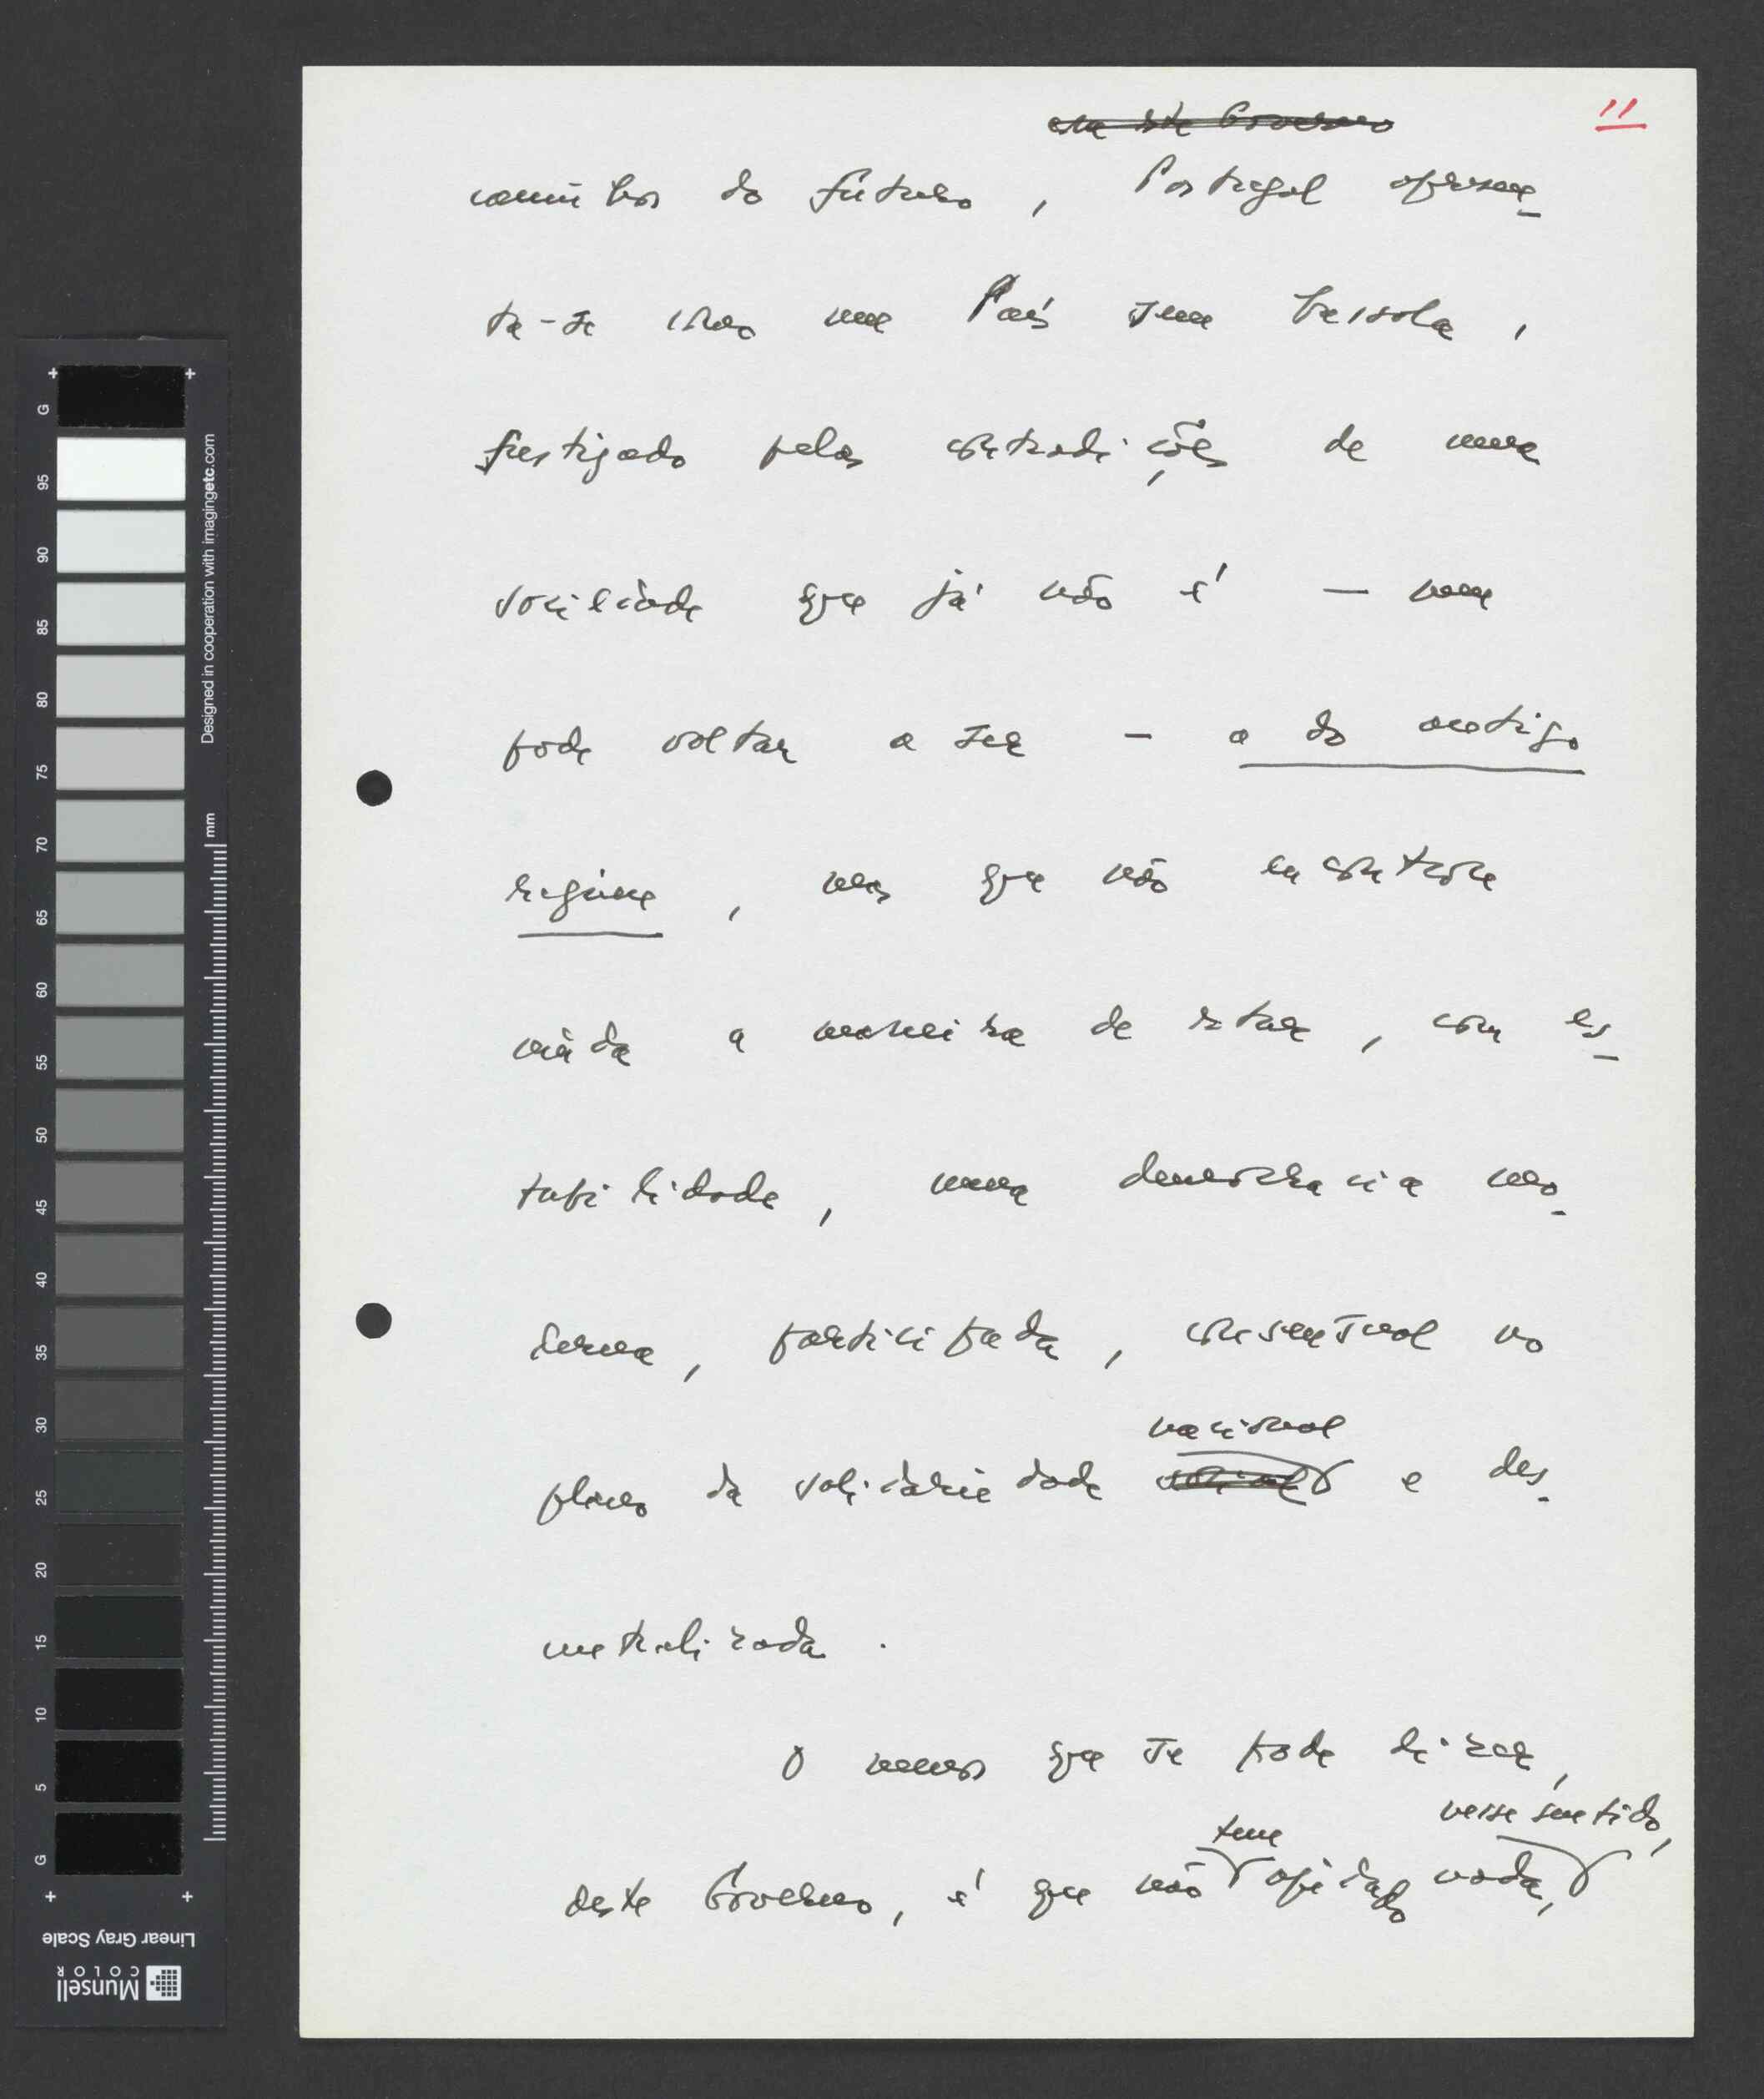 11
com este Governo
caminhos do futuro, Portugal apresen-
ta-se como um País sem bussola,
fustigado pelas contradições de uma
sociedade que já não é — nem
pode voltar a ser — a do antigo
regime, mas que não encontrou
ainda a maneira de estar, com es-
tabilidade, numa democracia mo-
derna, participada, consensual no
nacional
plano da solidariedade social e des-
centralizada.
O menos que se pode dizer,
tem nesse sentido,
deste Governo, é que não ajudado nada,
G
95
90
85
80
75
70
65
60
55
50
45
40
35
30
25
20
15
10
5
G
Designed in cooperation with imagingetc.com
mm
Linear Gray Scale
Munsell
COLOR